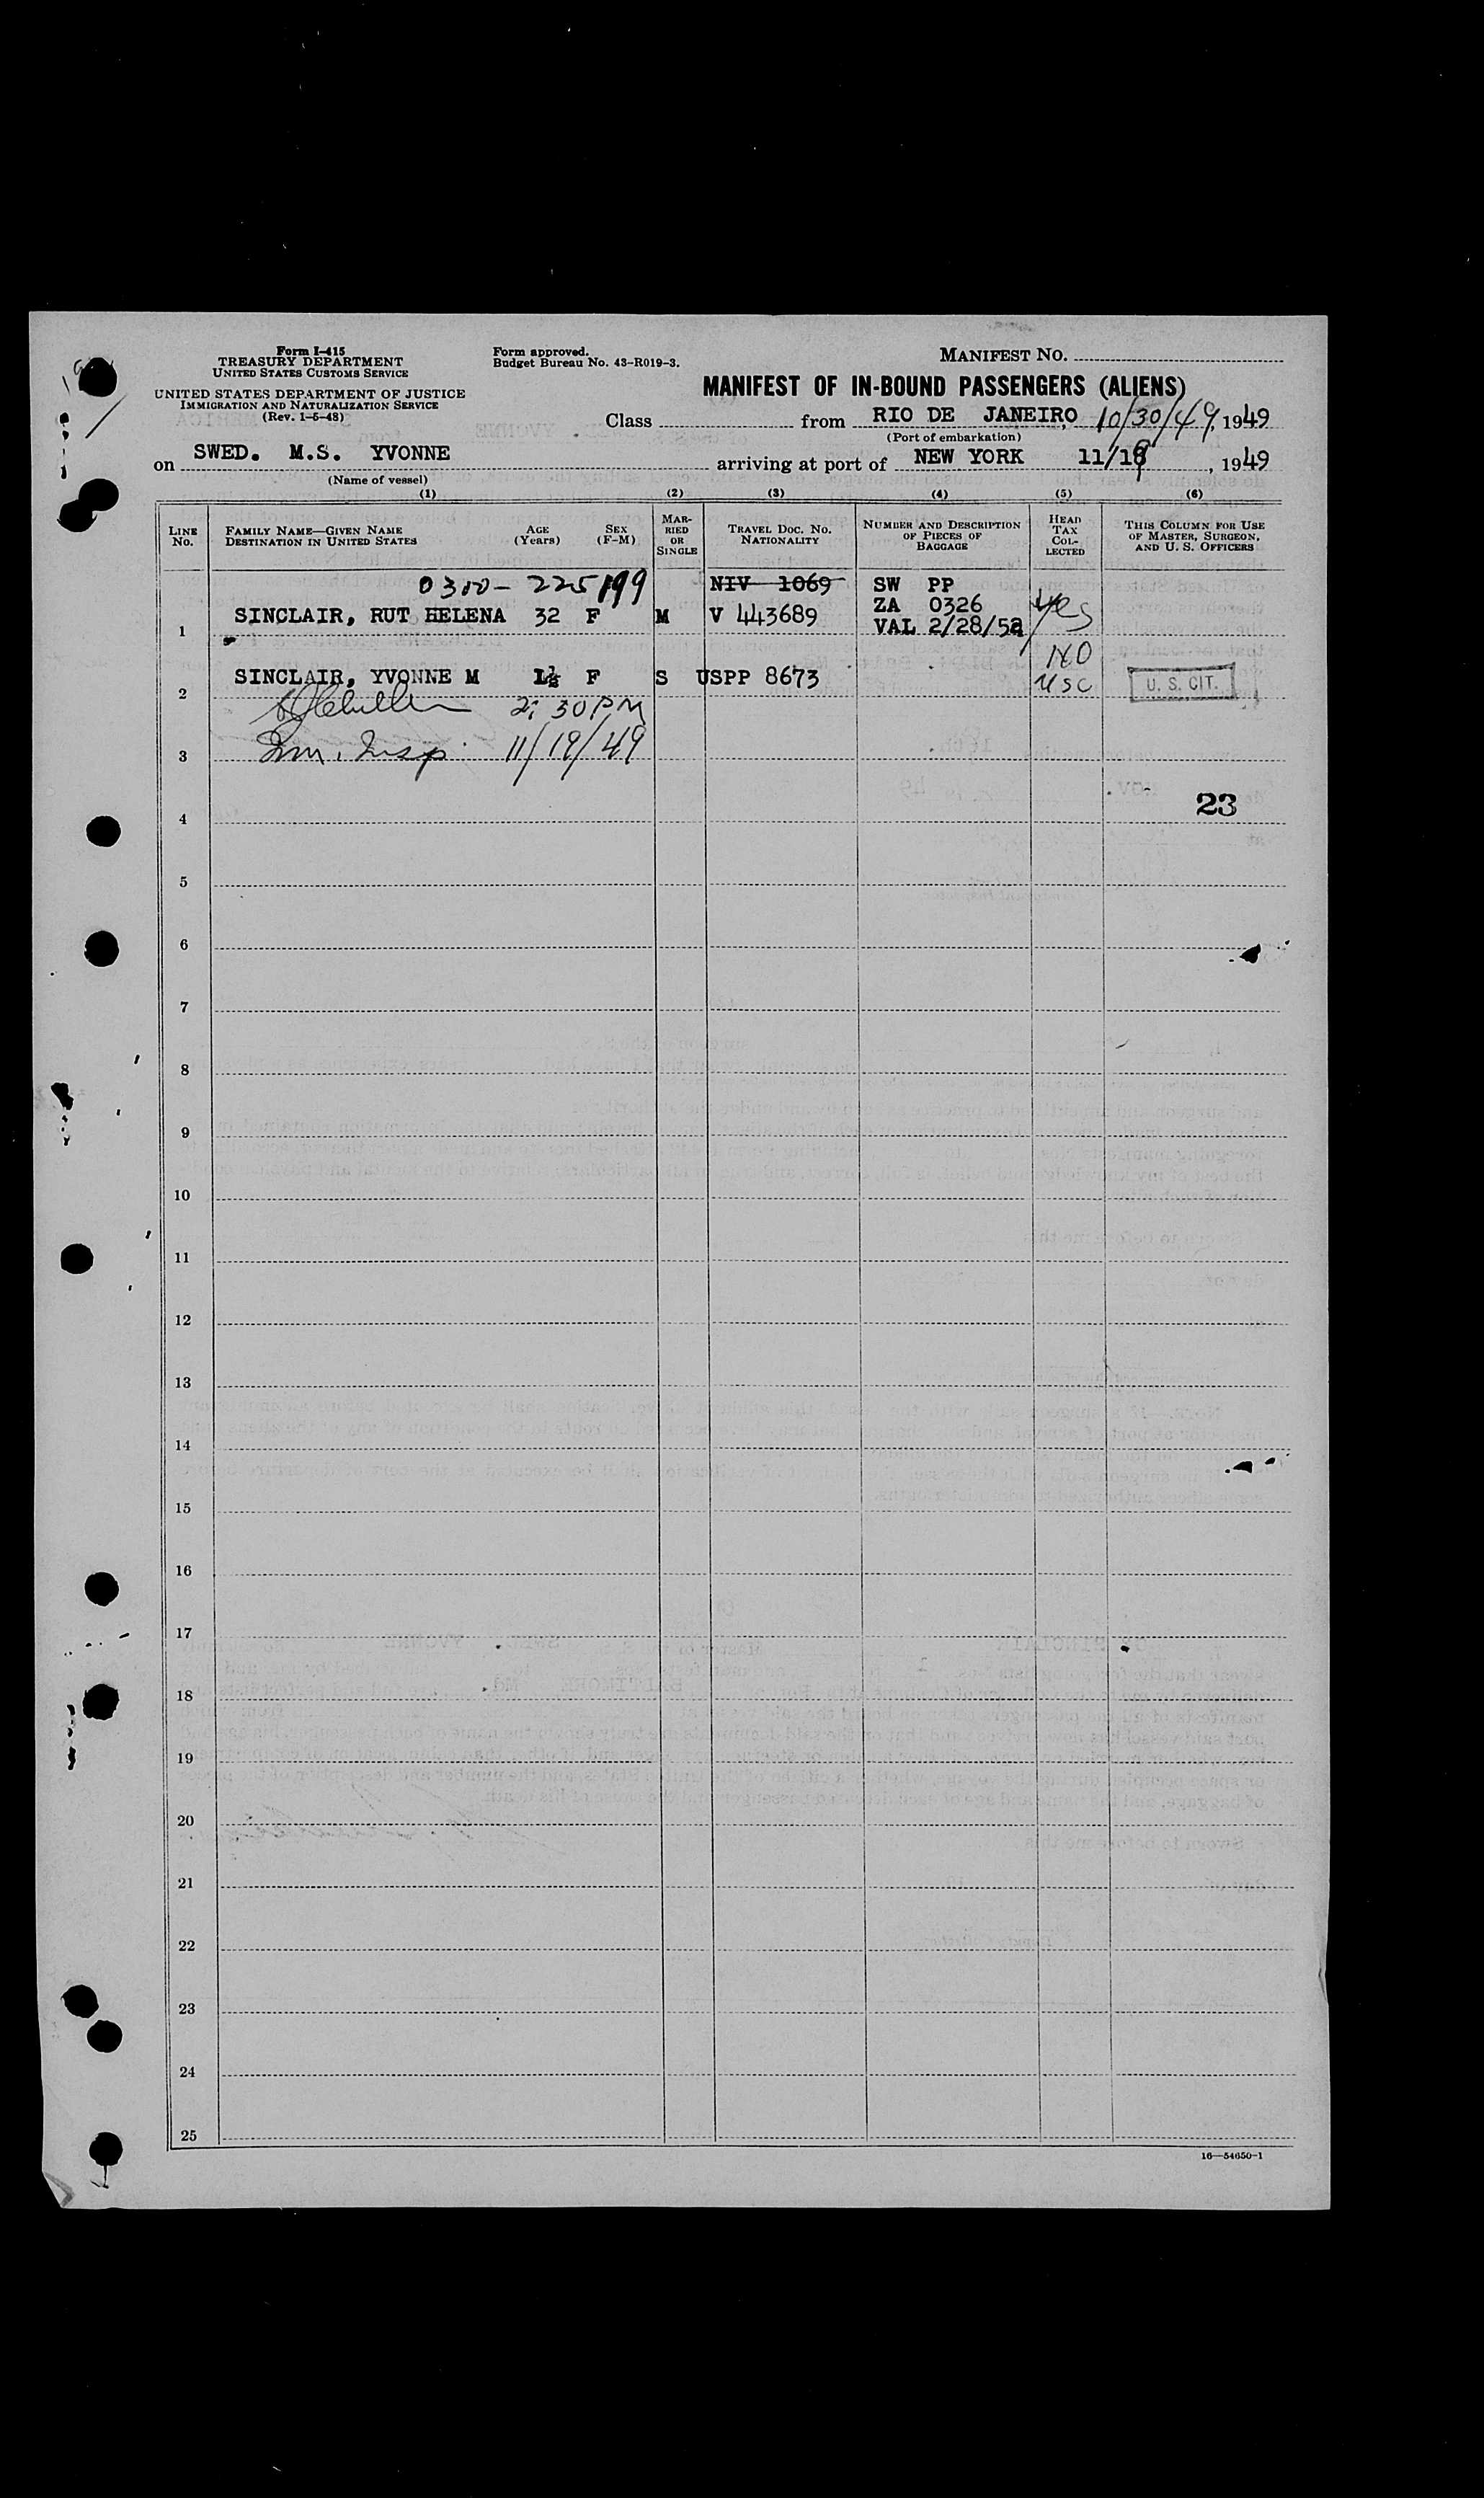 Form I-415
TREASURY DEPARTMENT
UNITED STATES CUSTOMS SERVICE
UNITED STATES DEPARTMENT OF JUSTICE
IMMIGRATION AND NATURALIZATION SERVICE
(Rev. 1-5-48)
Form approved.
Budget Bureau No. 43-R019-3.
MANIFEST NO.
MANIFEST OF IN-BOUND PASSENGERS (ALIENS)
Class from RIO DE JANEIRO, 10/30/49, 1949
(Port of embarkation)
on SWED. M.S. YVONNE arriving at port of NEW YORK 11/19, 1949
(Name of vessel)
(1) (2) (3) (4) (5) (6)
LINE NO.
FAMILY NAME—GIVEN NAME
DESTINATION IN UNITED STATES
AGE (Years)
SEX (F-M)
MARRIED OR SINGLE
TRAVEL DOC. NO.
NATIONALITY
NUMBER AND DESCRIPTION OF PIECES OF BAGGAGE
HEAD TAX COLLECTED
THIS COLUMN FOR USE OF MASTER, SURGEON, AND U. S. OFFICERS
0300-225199 NIV 1069 SW PP
ZA 0326 Yes
1 SINCLAIR, RUT HELENA 32 F M V 443689 VAL 2/28/52
NO
2 SINCLAIR, YVONNE M 1½ F S USPP 8673 USC U. S. CIT.
2:30 PM
3 Im. Insp. 11/19/49
23
4
5
6
7
8
9
10
11
12
13
14
15
16
17
18
19
20
21
22
23
24
25
16—54650-1